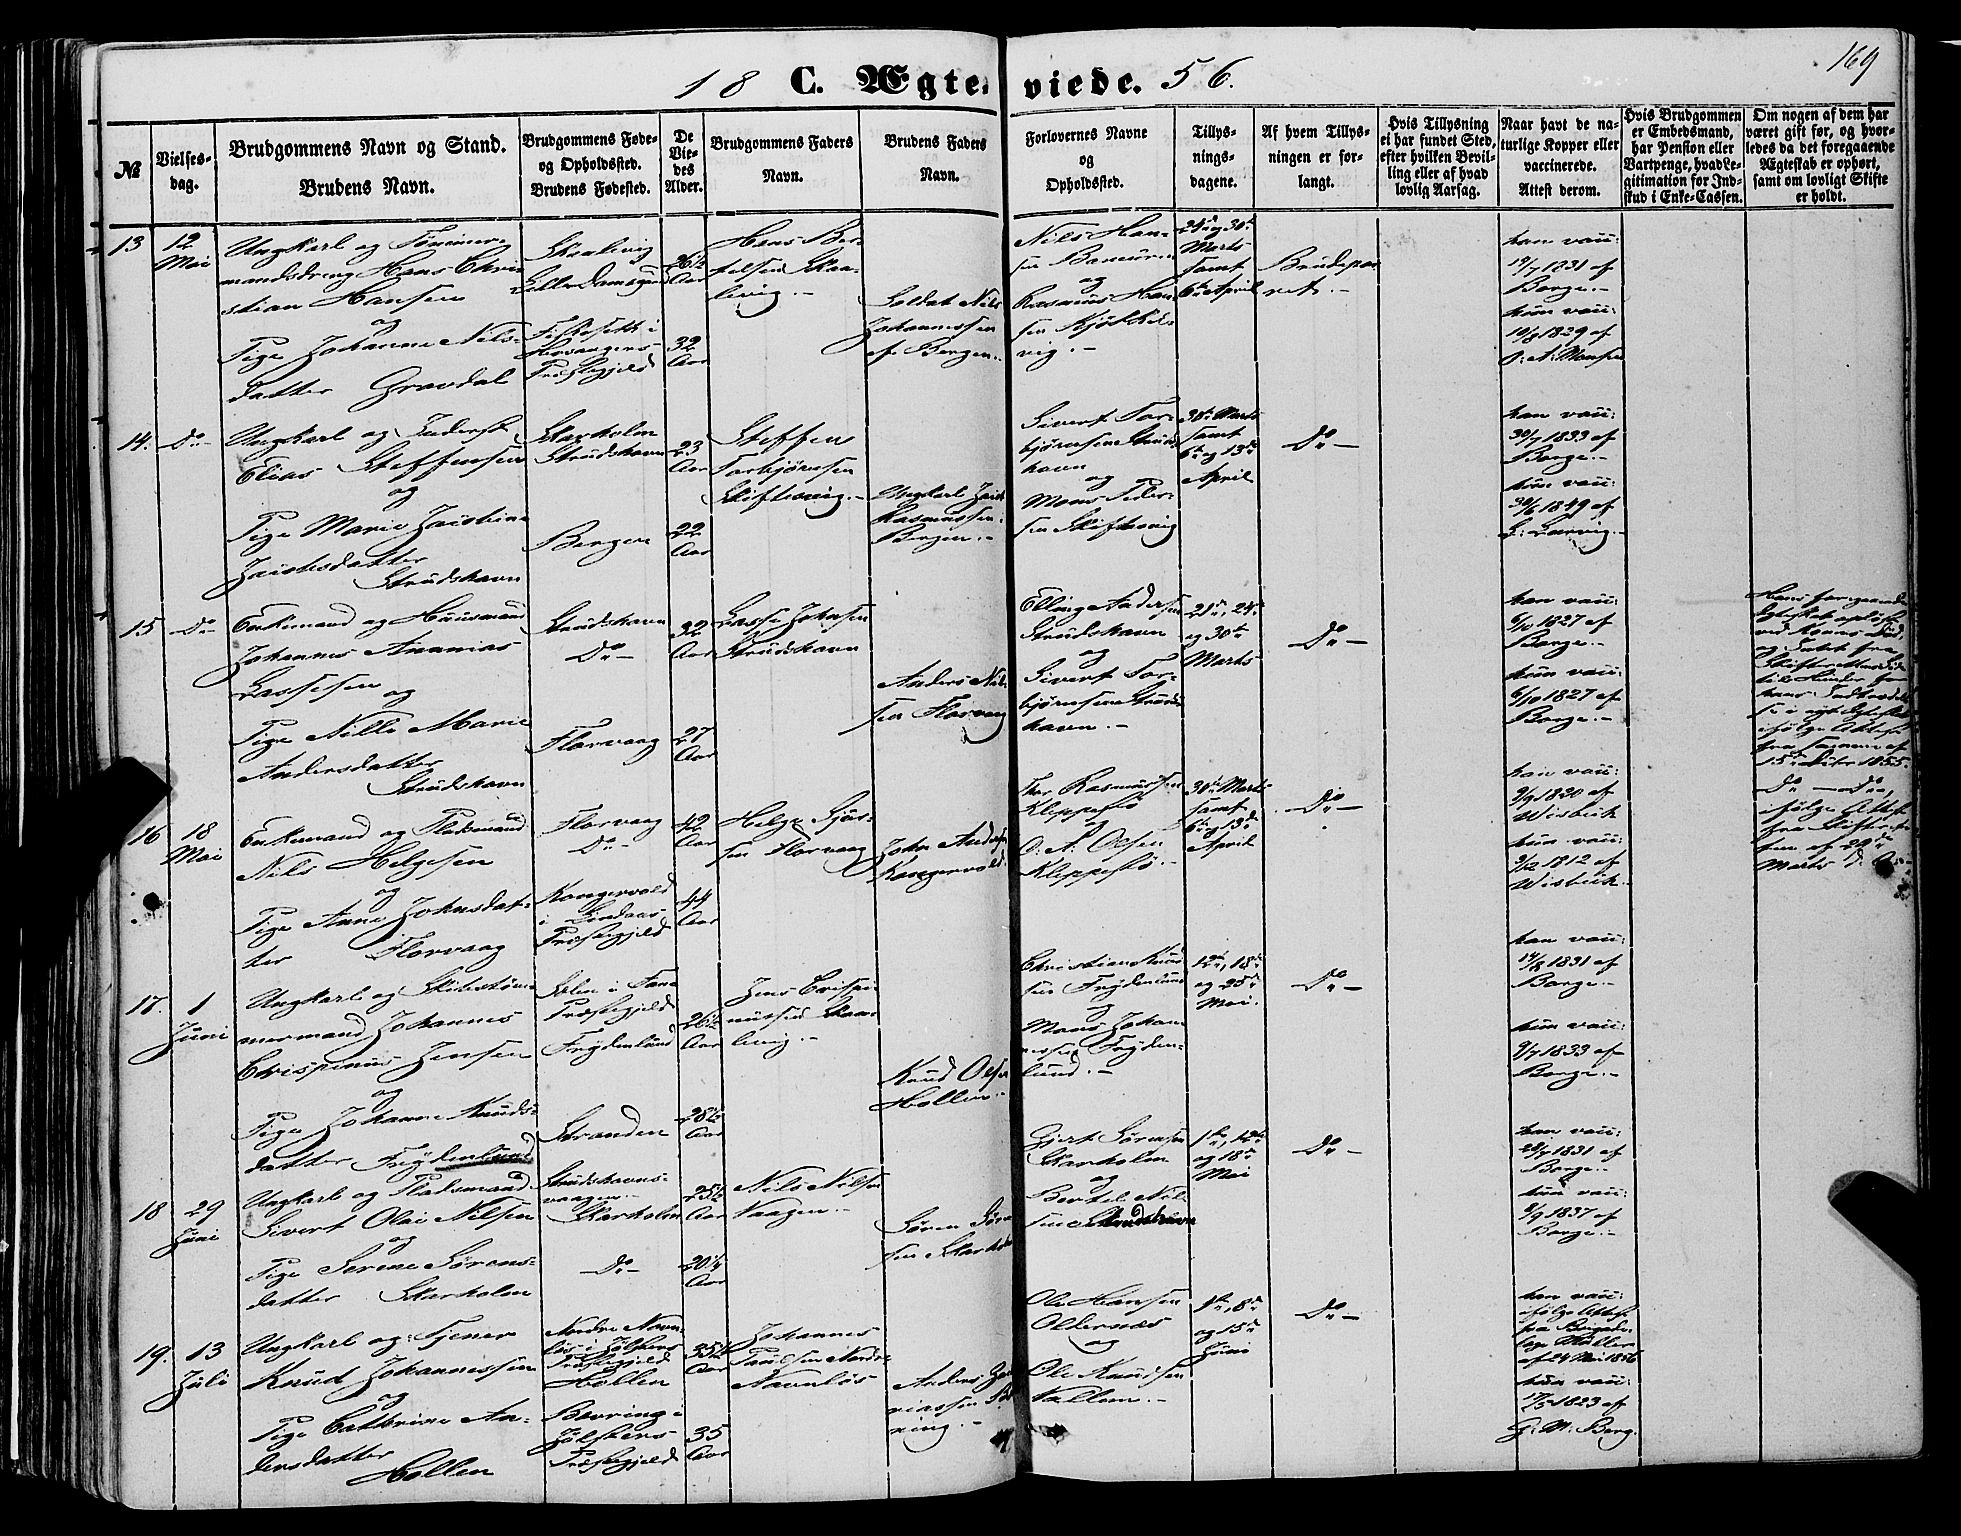 169
18 C. Ægteviede. 56.
№
Vielses-
dag.
Brudgommens Navn og Stand.
Brudens Navn.
Brudgommens Føde-
og Opholdssted.
Brudens Fødested.
De
Vie-
des
Alder.
Brudgommens Faders
Navn.
Brudens Faders
Navn.
Forlovernes Navne
og
Opholdssted.
Tillys-
nings-
dagene.
Af hvem Tillys-
ningen er for-
langt.
Hvis Tillysning
ei har fundet Sted,
efter hvilken Bevil-
ling eller af hvad
lovlig Aarsag.
Naar havt de na-
turlige Kopper eller
vaccinerede.
Attest derom.
Hvis Brudgommen
er Embedsmand,
har Pension eller
Vartpenge, hvad Le-
gitimation for Ind-
skud i Enke-Cassen.
Om nogen af dem har
været gift før, og hvor-
ledes da det foregaaende
Ægteskab er ophørt,
samt om lovligt Skifte
er holdt.
13
12
Mai
Ungkarl og Tømmer-
mandsdreng Hans Chri-
stian Hansen
og
Pige Johanne Nils-
datter Gravdal
Skaalevig
Lille Damsgaard
Præstegjeld
26½
Aar
32
Aar
Hans Ber-
telsen Skaa-
levig.-
Soldat Nils
Johannessen
af Bergen.
Nils Han-
sen
og
Rasmus Han-
sen Kjøkkel-
vig.-
24de og 30te
Marts
samt
6te April
Brudepar-
ret.-
han vacc:
19/7 1831 af
Borge.-
hun vacc:
10/8 1829 af
O. A. Monsen
14.
Do-
Ungkarl og Inderst
Elias Steffensen
og
Pige Marie Jacobine
Jacobsdatter
Strudshavn
Skarholm
Strudshavn
Bergen
23
Aar
22
Aar
Steffen
Torbjørnsen
Skiftesvig.-
Ungkarl Jacob
Rasmussen
Bergen.-
Sivert Tor-
bjørnsen Struds-
havn
og
Mons Peder-
sen Skiftesvig
30te Marts
samt
6te og 13de
April
Do-
han vacc:
30/7 1833 af
Borge.-
hun vacc:
30/6 1849 af
15
Do-
Enkemand og Huusmand
Johannes Ananias
Lassesen og
Pige Nille Marie
Andersdatter
Strudshavn
Strudshavn
Do-
Florvaag
32
Aar
27
Aar
Lasse Johnsen
Strudshavn
Anders Nil-
sen Florvaag
Elling Andersen
Strudshavn
og
Sivert Tor-
bjørnsen Struds-
havn.-
21de, 24de
og 30te
Marts
Do-
han vacc:
6/10 1827 af
Borge.-
hun vacc:
6/10 1827 af
Borge.-
Hans foregaaende
Egteskab opløst
ved Konens Død,
og Intet fra
Skifterettens Side
til Hinder for
hans Indtrædel-
se i nyt Egteskab
ifølge Attest
fra Samme af
15de 1855.
16
18
Mai
Enkemand og Pladsmand
Nils Helgesen
og
Pige Anne Johnsdat-
ter Florvaag
Florvaag
Do-
Kongsvold
i Lindaas
Præstegjeld
42
Aar
44
Aar
Helge
sen Florvaag
John Anders.
Kongsvold.
Thor Rasmussen
Kleppestø
og
O. A. Olsen
Kleppestø.-
30te Marts
samt
6te og 13de
April
Do-
han vacc:
9/9 1820 af
Wisbeck
hun vacc:
9/12 1812 af
Wisbeck.
Do - Do,
ifølge Attest
fra Skifteret-
ten af 29de
Marts d. A.-
17.
1
Juni
Ungkarl og Skibstøm-
mermand Johannes
Crispinus Jensen
og
Pige Johanne Knuds-
datter Frydenlund
Præstegjeld
Frydenlund
Stranden
26½
Aar
28½
Aar
Jens Crispi-
nussen Skaa-
levig.-
Knud Olsen
Hollen.-
Christian Knud-
sen Frydenlund
og
Mons Johan-
nessen Fryden-
lund.-
12te, 18de
og 25de
Mai.
Do-
han vacc:
14/8 1831 af
Borge.-
hun vacc:
9/7 1833 af
Borge.-
18
29
Juni
Ungkarl og Pladsmand
Sivert Olai Nilsen
og
Pige Serene Sørens-
datter Skarholm
Strudshavns-
vaagen.-
Skarholm
- Do -
25½
Aar
20¼
Aar
Nils Nilsen
Vaagen.-
Søren Søren-
sen Skarholm
Gjert Sørensen
Skarholm
og
Bertel Nil-
sen Strudshavn
1ste, 12te
og 18de
Mai
Do-
han vacc:
28/7 1831 af
Borge.-
hun vacc:
9/9 1837 af
Borge.-
19.
13
Juli
Ungkarl og Tjener
Knud Johannessen
og
Pige Cathrine An-
dersdatter
Hollen
Nordre Navn-
løs i Jølsters
Præstegjeld
Hollen
Bevring i
Jølsters
Præstegjeld
35½
Aar
35
Aar
Johannes
Poulsen Nordre
Navnløs
Anders
Ole Hansen
Oldernæs
og
Ole Knudsen
Vallem.-
1ste, 8de
og 15de
Juni
Do-
han vacc:
ifølge Attest
fra Brigade-
læge Møller
af 24 Mai 1856
hun vacc:
17/5 1823 af
G. M. Berg.